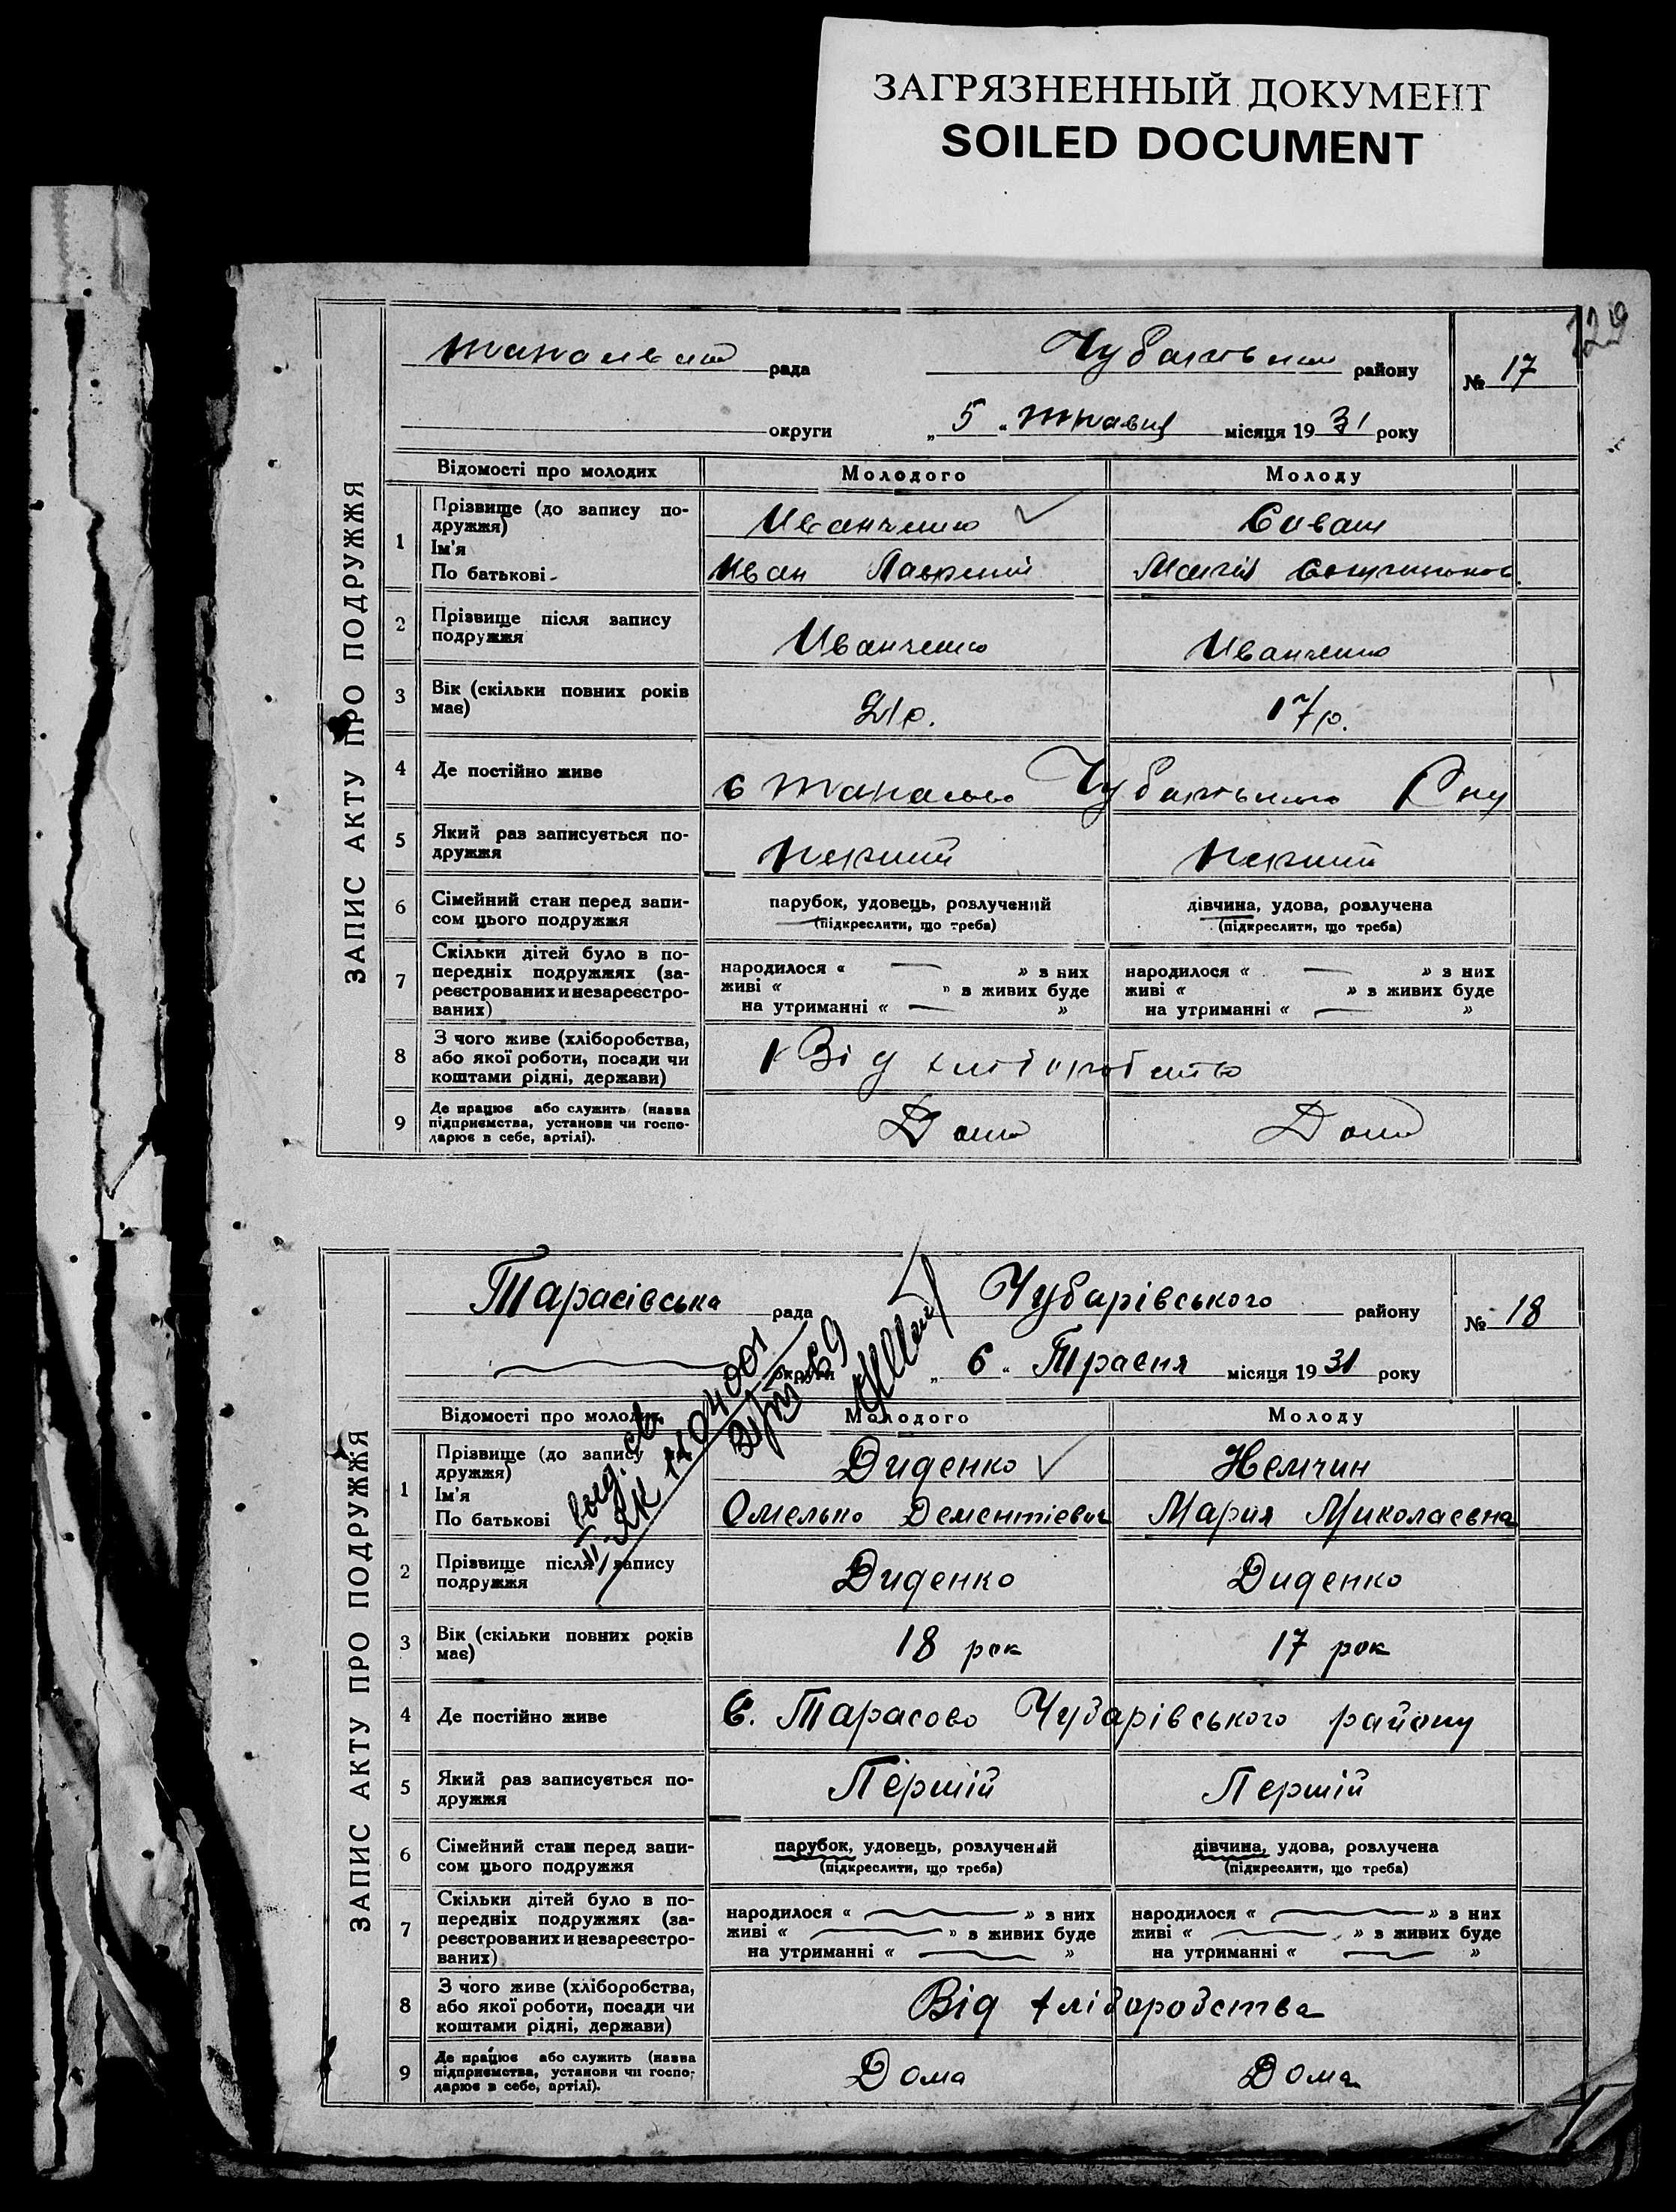 ЗАГРЯЗНЕННЫЙ ДОКУМЕНТ
SOILED DOCUMENT
рада району № 17
округи „ 5 “ травня місяця 1931 року
ЗАПИС АКТУ ПРО ПОДРУЖЖЯ
Відомості про молодих Молодого Молоду
1 Прізвище (до запису по-
дружжя) Иванченко Сиваш
Ім'я
По батькові Иван Мария
2 Прізвище після запису
подружжя Иванченко Иванченко
3 Вік (скільки повних років
має) 21 р. 17 р.
4 Де постійно живе с Тарасово
5 Який раз записується по-
дружжя перший перший
6 Сімейний стан перед запи-
сом цього подружжя
парубок, удовець, розлучений дівчина, удова, розлучена
(підкреслити, що треба) (підкреслити, що треба)
7 Скільки дітей було в по-
передніх подружжях (за-
реєстрованих и незареєстро-
ваних)
народилося « — » з них народилося « — » з них
живі « » з живих буде живі « » з живих буде
на утриманні « — » на утриманні « — »
8 З чого живе (хліборобства,
або якої роботи, посади чи
коштами рідні, держави) Від хліборобства
9 Де працює або служить (назва
підприємства, установи чи госпо-
дарює в себе, артілі). Дома Дома
Тарасівська рада Чубарівського району № 18
округи „ 6 “ Травня місяця 1931 року
ЗАПИС АКТУ ПРО ПОДРУЖЖЯ
Відомості про молодих Молодого Молоду
1 Прізвище (до запису по-
дружжя) Диденко Немчин
Ім'я
По батькові Омелько Дементієвич Мария Миколаєвна
2 Прізвище після запису
подружжя Диденко Диденко
3 Вік (скільки повних років
має) 18 рок 17 рок
4 Де постійно живе С. Тарасово Чубарівського району
5 Який раз записується по-
дружжя Першій Першій
6 Сімейний стан перед запи-
сом цього подружжя
парубок, удовець, розлучений дівчина, удова, розлучена
(підкреслити, що треба) (підкреслити, що треба)
7 Скільки дітей було в по-
передніх подружжях (за-
реєстрованих и незареєстро-
ваних)
народилося « — » з них народилося « — » з них
живі « — » з живих буде живі « — » з живих буде
на утриманні « — » на утриманні « — »
8 З чого живе (хліборобства,
або якої роботи, посади чи
коштами рідні, держави) Від хліборобства
9 Де працює або служить (назва
підприємства, установи чи госпо-
дарює в себе, артілі). Дома Дома